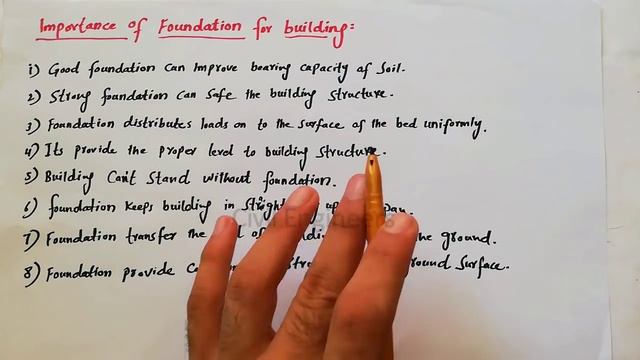 Importance of Foundation for building:
1) Good foundation can improve bearing capacity of Soil.
2) Strong foundation can Safe the building Structure.
3) Foundation distributes loads on to the surface of the bed uniformly.
4) Its provide the proper level to building Structure.
5) Building Can't Stand without foundation.
6) foundation keeps building in
7) Foundation transfer the of the ground.
8) Foundation provide Surface.
Civil Engineers